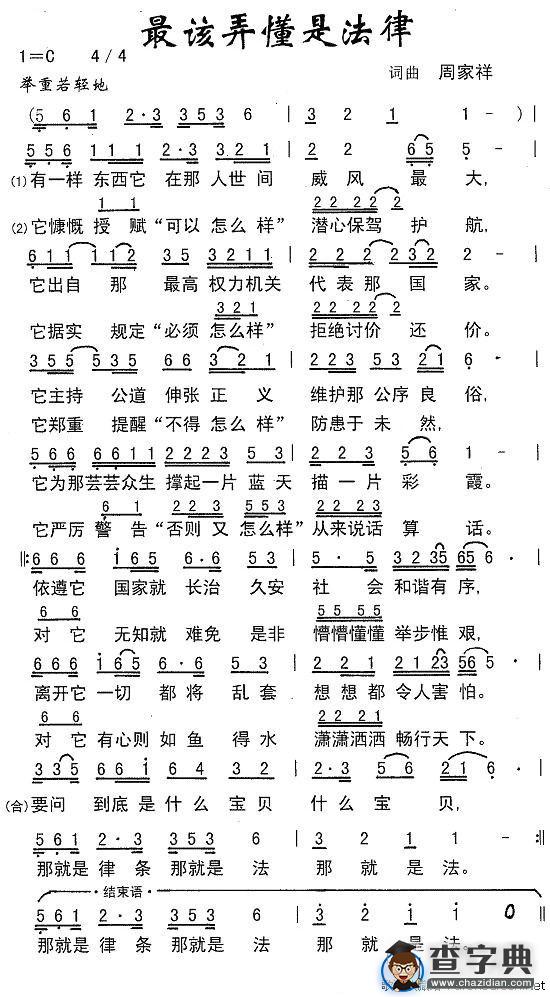 最该弄懂是法律
1=C 4/4
词曲 周家祥
举重若轻地
(5 6 1 2·3 3 5 3 6 | 3 2 1 - )|
5 5 6 1 1 1 2·3 3 2 1 | 2 2 6 5 5 -
(1) 有一样 东西它 在那 人世间 威风 最大,
1 1 2 2 2 2 2 2
(2) 它慷慨授赋“可以怎么样” 潜心保驾 护航,
6 1 1 1 1 2 3 5 3 2 1 1 | 2 2 2 2 3 2 2 -
它出自那 最高权力机关 代表那国家。
3 2 1 2 2 2 2 2 2
它据实 规定“必须怎么样” 拒绝讨价 还价。
3 5 5 5 3 5 6 6 3 2 1 | 2 2 3 5 3 2 1 6 ·
它主持 公道 伸张 正义 维护那 公序良俗,
它郑重 提醒“不得怎么样” 防患于未然,
5 5 6 6 6 1 1 2 2 2 3 5 3 | 2 2 2 3 6 5 5 -
它为那芸芸众生 撑起一片 蓝天 描一片彩霞。
6 1 2 2 2 3 5 5 3 2 2 2 3
它严厉 警告“否则又怎么样” 从来说话 算话。
‖: 6 6 6 1 6 5 6·6 5 3 | 5 · 5 3 2 3 5 6 5 6 ·
依遵它 国家就 长治 久安 社会和谐有序,
6 6 5 5 5 5
对它 无知就 难免 是非 懵懵懂懂 举步惟艰,
6 6 6 1 6 5 6·6 5 3 | 2 · 1 2 1 2 3 5 6 5 ·
离开它 一切 都将 乱套 想想都令人害怕。
6 6 2 2 2 1
对它 有心则 如鱼 得水 潇潇洒洒 畅行天下。
3 3 5 6 6 1 6 4 3 2 | 3 2 3 2 1 6 ·
(合) 要问 到底是 什么 宝贝 什么宝贝,
5 6 1 2·3 3 5 3 6 | 3 2 1 1 - :‖
那就是 律条 那就是 法 那就是法。
结束语
5 6 1 2·3 3 5 3 6 | 3 2 1 1 0 ‖
那就是 律条 那就是 法 那就是法。
查字典
www.chazidian.com